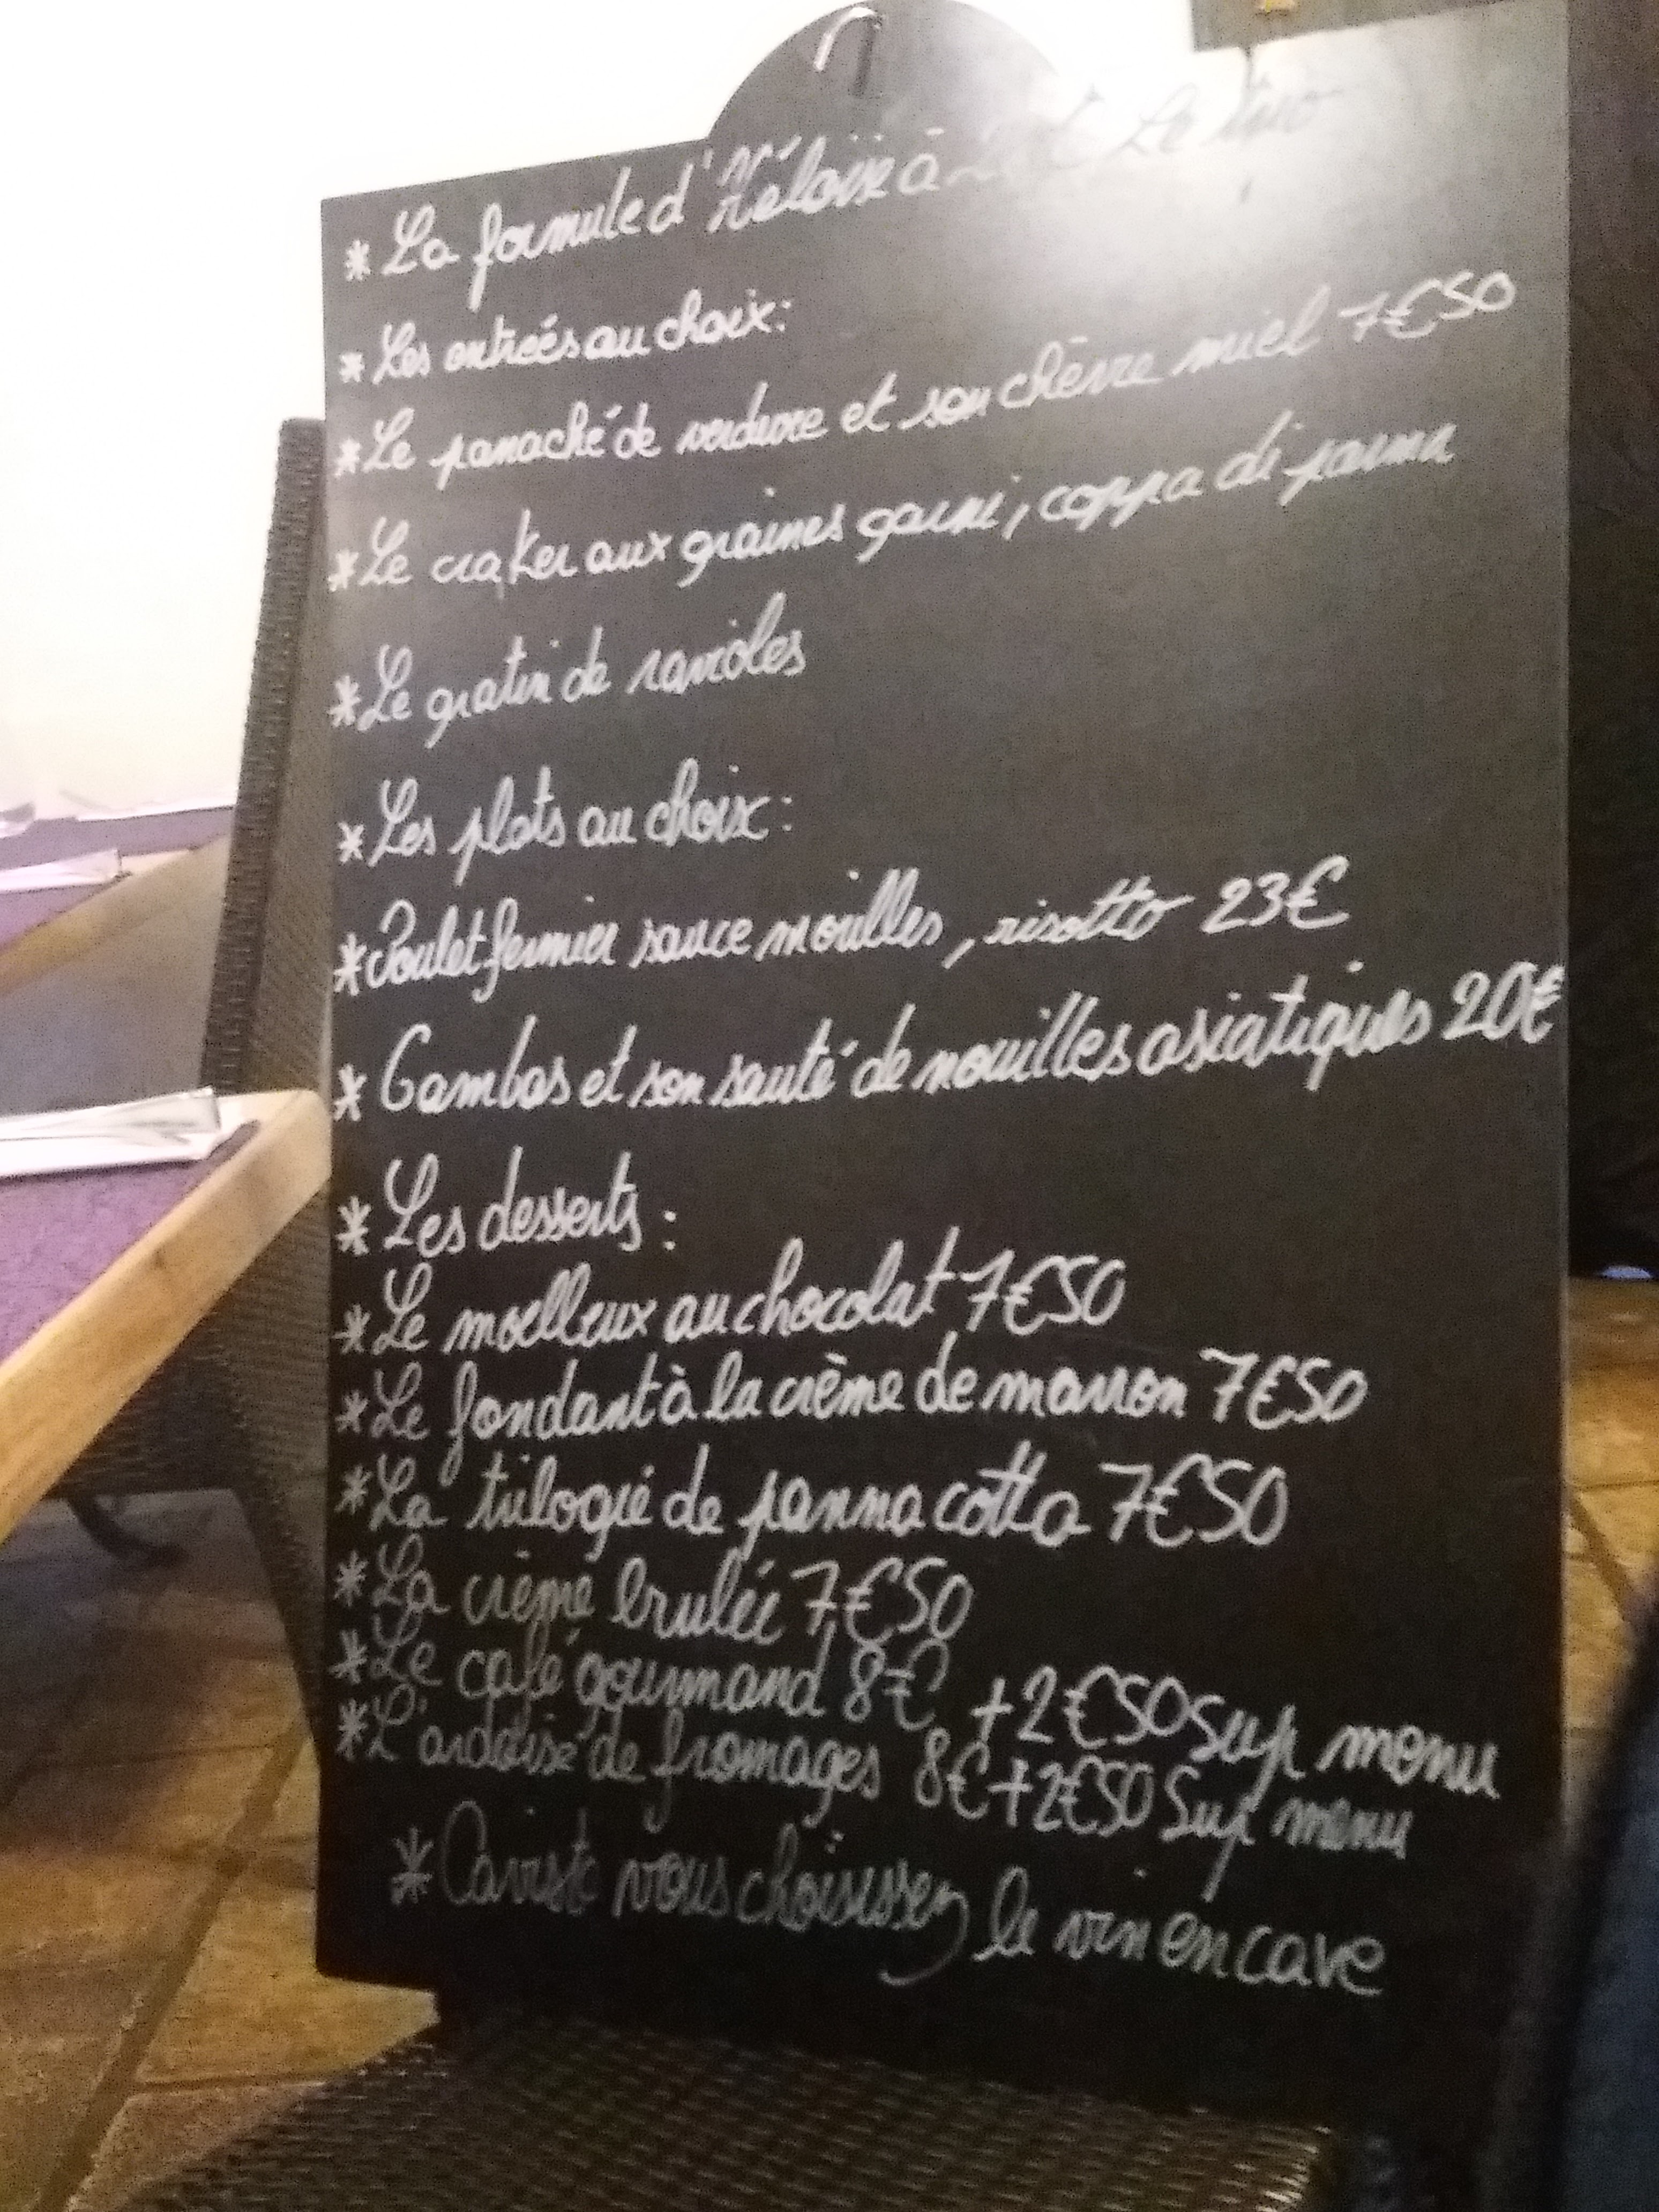 * La formule d'Héloïse à
* Les entrées au choix:
* Le panaché de verdure et son chèvre miel 7€50
* Le craker aux graines garni, coppa di parma
* Le gratin de ravioles
* Les plats au choix:
* Poulet fermier sauce morilles, risotto 23€
* Gambas et son sauté de nouilles asiatiques 20€
* Les desserts :
* Le moelleux au chocolat 7€50
* Le fondant à la crème de marron 7€50
* La trilogie de panna cotta 7€50
* La crème brulée 7€50
* Le café gourmand 8€ +2€50 Sup menu
* L'ardoise de fromages 8€ +2€50 Sup menu
* Caviste vous choisissez le vin en cave